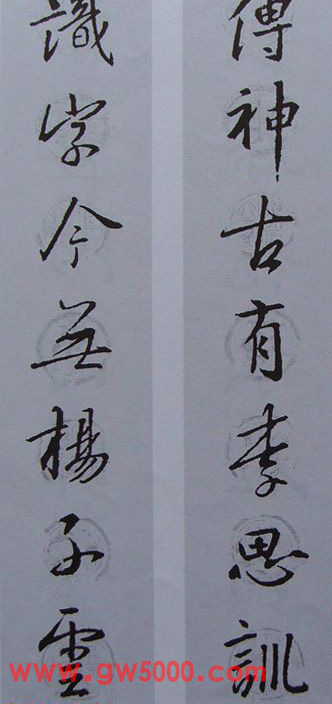 傳神古有李思訓
識字今無楊子雲
www.gw5000.com